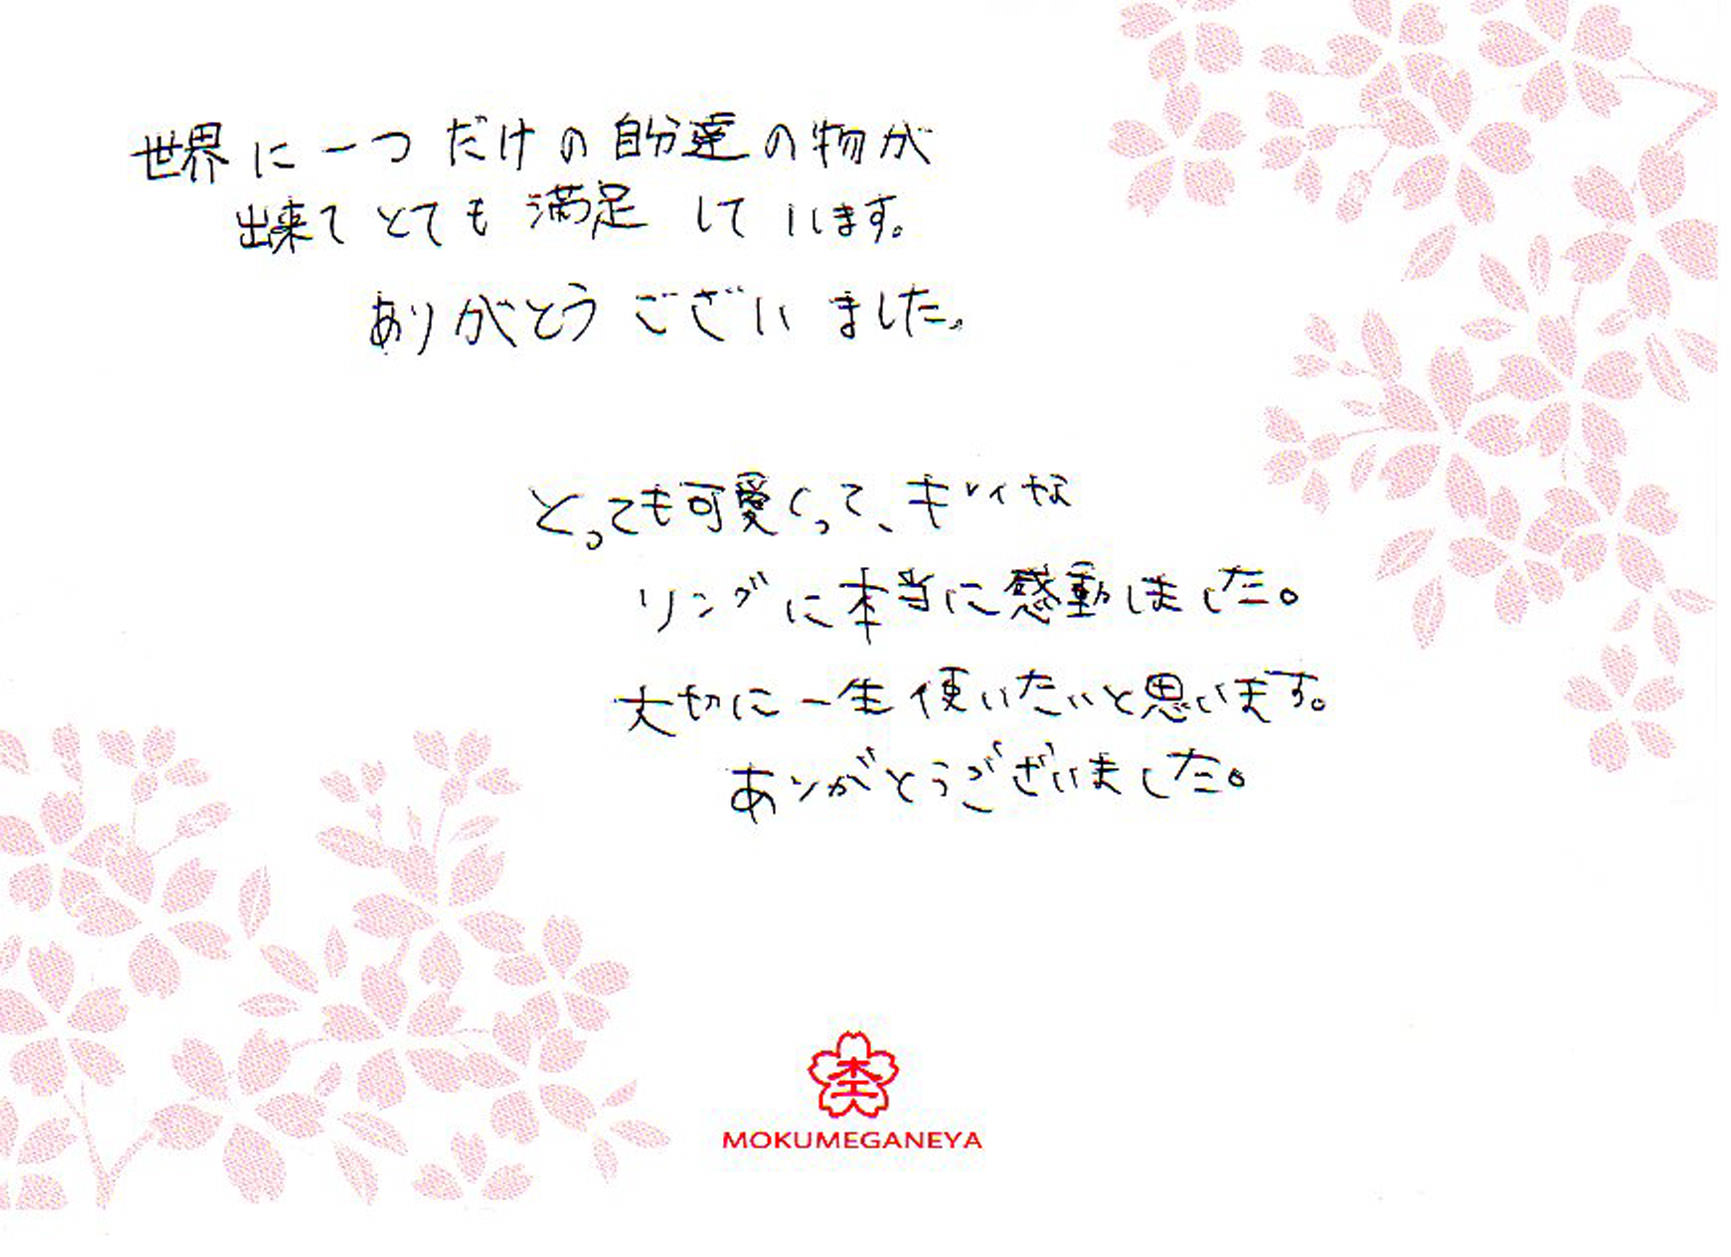 世界に一つだけの自分達の物が
出来てとても満足しています。
ありがとうございました。
とっても可愛くって、キレイな
リングに本当に感動しました。
大切に一生使いたいと思います。
ありがとうございました。
MOKUMEGANEYA